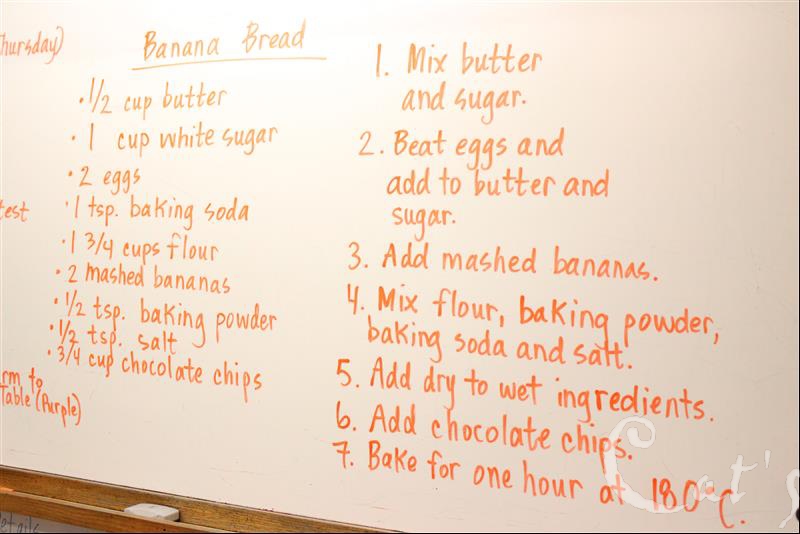 hursday)
Banana Bread
· 1/2 cup butter
· 1 cup white sugar
· 2 eggs
test
· 1 tsp. baking soda
· 1 3/4 cups flour
· 2 mashed bananas
· 1/2 tsp. baking powder
· 1/2 tsp. salt
· 3/4 cup chocolate chips
rm to
Table (Purple)
1. Mix butter
and sugar.
2. Beat eggs and
add to butter and
sugar.
3. Add mashed bananas.
4. Mix flour, baking powder,
baking soda and salt.
5. Add dry to wet ingredients.
6. Add chocolate chips.
7. Bake for one hour at 180°C.
Cat's
etails